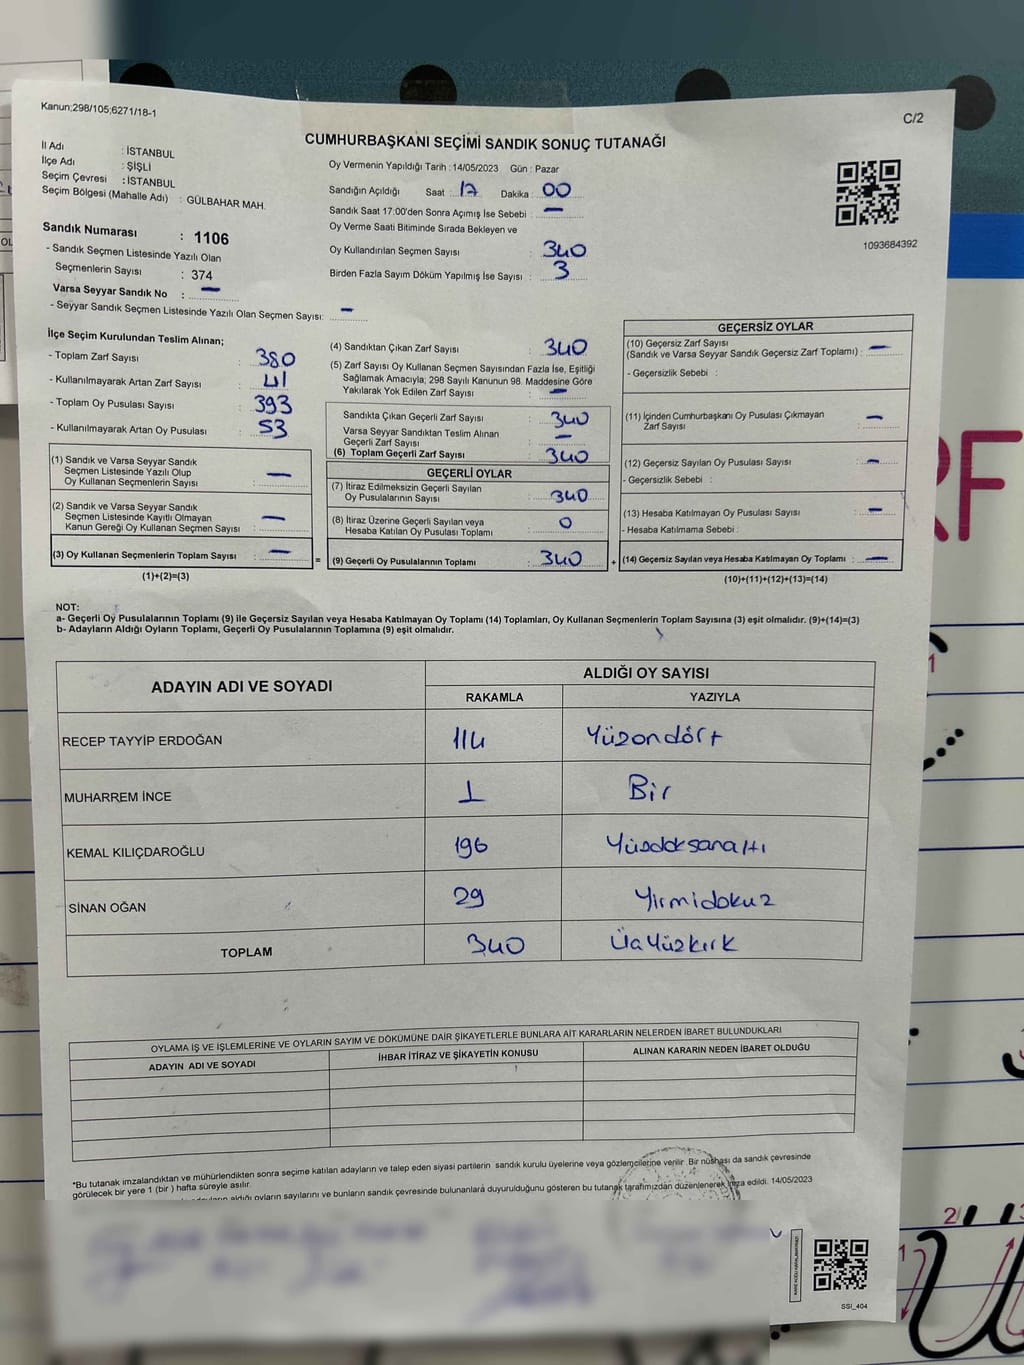 Kanun;298/105;6271/18-1
C/2
CUMHURBAŞKANI SEÇİMİ SANDIK SONUÇ TUTANAĞI
İl Adı : İSTANBUL
İlçe Adı : ŞİŞLİ
Seçim Çevresi : İSTANBUL
Seçim Bölgesi (Mahalle Adı) : GÜLBAHAR MAH.
Oy Vermenin Yapıldığı Tarih : 14/05/2023 Gün : Pazar
Sandığın Açıldığı Saat : 17 Dakika : 00
Sandık Saat 17:00'den Sonra Açımış İse Sebebi : —
Oy Verme Saati Bitiminde Sırada Bekleyen ve
Oy Kullandırılan Seçmen Sayısı : 340
Birden Fazla Sayım Döküm Yapılmış İse Sayısı : 3
1093684392
Sandık Numarası : 1106
- Sandık Seçmen Listesinde Yazılı Olan
Seçmenlerin Sayısı : 374
Varsa Seyyar Sandık No : —
- Seyyar Sandık Seçmen Listesinde Yazılı Olan Seçmen Sayısı: —
İlçe Seçim Kurulundan Teslim Alınan;
- Toplam Zarf Sayısı : 380
- Kullanılmayarak Artan Zarf Sayısı : 41
- Toplam Oy Pusulası Sayısı : 393
- Kullanılmayarak Artan Oy Pusulası : 53
(1) Sandık ve Varsa Seyyar Sandık
Seçmen Listesinde Yazılı Olup
Oy Kullanan Seçmenlerin Sayısı : —
(2) Sandık ve Varsa Seyyar Sandık
Seçmen Listesinde Kayıtlı Olmayan
Kanun Gereği Oy Kullanan Seçmen Sayısı : —
(3) Oy Kullanan Seçmenlerin Toplam Sayısı : —
(1)+(2)=(3)
=
(4) Sandıktan Çıkan Zarf Sayısı : 340
(5) Zarf Sayısı Oy Kullanan Seçmen Sayısından Fazla İse, Eşitliği
Sağlamak Amacıyla; 298 Sayılı Kanunun 98. Maddesine Göre
Yakılarak Yok Edilen Zarf Sayısı : —
Sandıkta Çıkan Geçerli Zarf Sayısı : 340
Varsa Seyyar Sandıktan Teslim Alınan
Geçerli Zarf Sayısı : —
(6) Toplam Geçerli Zarf Sayısı : 340
GEÇERLİ OYLAR
(7) İtiraz Edilmeksizin Geçerli Sayılan
Oy Pusulalarının Sayısı : 340
(8) İtiraz Üzerine Geçerli Sayılan veya
Hesaba Katılan Oy Pusulası Toplamı : 0
(9) Geçerli Oy Pusulalarının Toplamı : 340
+
GEÇERSİZ OYLAR
(10) Geçersiz Zarf Sayısı
(Sandık ve Varsa Seyyar Sandık Geçersiz Zarf Toplamı) : —
- Geçersizlik Sebebi :
(11) İçinden Cumhurbaşkanı Oy Pusulası Çıkmayan
Zarf Sayısı : —
(12) Geçersiz Sayılan Oy Pusulası Sayısı : —
- Geçersizlik Sebebi :
(13) Hesaba Katılmayan Oy Pusulası Sayısı : —
- Hesaba Katılmama Sebebi :
(14) Geçersiz Sayılan veya Hesaba Katılmayan Oy Toplamı : —
(10)+(11)+(12)+(13)=(14)
NOT:
a- Geçerli Oy Pusulalarının Toplamı (9) ile Geçersiz Sayılan veya Hesaba Katılmayan Oy Toplamı (14) Toplamları, Oy Kullanan Seçmenlerin Toplam Sayısına (3) eşit olmalıdır. (9)+(14)=(3)
b- Adayların Aldığı Oyların Toplamı, Geçerli Oy Pusulalarının Toplamına (9) eşit olmalıdır.
ADAYIN ADI VE SOYADI ALDIĞI OY SAYISI
RAKAMLA YAZIYLA
RECEP TAYYİP ERDOĞAN 114 Yüzondört
MUHARREM İNCE 1 Bir
KEMAL KILIÇDAROĞLU 196 Yüzdoksanaltı
SİNAN OĞAN 29 Yirmidokuz
TOPLAM 340 ÜçYüzkırk
OYLAMA İŞ VE İŞLEMLERİNE VE OYLARIN SAYIM VE DÖKÜMÜNE DAİR ŞİKAYETLERLE BUNLARA AİT KARARLARIN NELERDEN İBARET BULUNDUKLARI
ADAYIN ADI VE SOYADI İHBAR İTİRAZ VE ŞİKAYETİN KONUSU ALINAN KARARIN NEDEN İBARET OLDUĞU
*Bu tutanak imzalandıktan ve mühürlendikten sonra seçime katılan adayların ve talep eden siyasi partilerin sandık kurulu üyelerine veya gözlemcilerine verilir. Bir nüshası da sandık çevresinde
görülecek bir yere 1 (bir) hafta süreyle asılır.
aldığı oyların sayılarını ve bunların sandık çevresinde bulunanlara duyurulduğunu gösteren bu tutanak tarafımızdan düzenlenerek imza edildi. 14/05/2023
SSI_404
RF
1
2
1